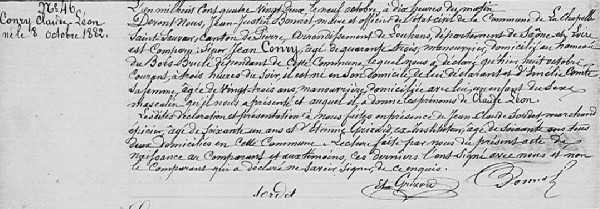 N° 46.
Conry Claude Léon
né le 8 octobre 1882.
L'an mil huit cent quatre vingt deux, le neuf octobre, à dix heures du matin
Devant Nous, Jean Justin Bonnot maire et officier de l'état civil de la Commune de La Chapelle
Saint Sauveur, Canton de Pierre, arrondissement de Louhans, département de Saône et Loire
est comparu: Sieur Jean Conry, âgé de quarante trois, manouvrier, domicilié au hameau
du Bois dépendant de Cette Commune, lequel nous a déclaré que hier huit octobre
Courant, à trois heures du soir, il est né en son domicile de lui déclarant et d' Comte
sa femme, âgée de vingt-trois ans, manouvrière, domiciliée avec lui, un enfant du Sexe
masculin qu'il nous a présenté et auquel il a donné les prénoms de Claude Léon
Les dites déclaration et présentation à nous faites en présence de Jean Claude Serdot marchand
épicier, âgé de soixante un ans et d'Etienne Guizard, ex-Instituteur, âgé de soixante ans tous
deux Domiciliés en cette Commune. Lecture faite par nous du présent acte de
naissance au Comparant et aux témoins, ces derniers l'ont Signé avec nous et non
le Comparant qui a déclaré ne savoir Signer, de ce enquis.
Serdot Guizard Bonnot